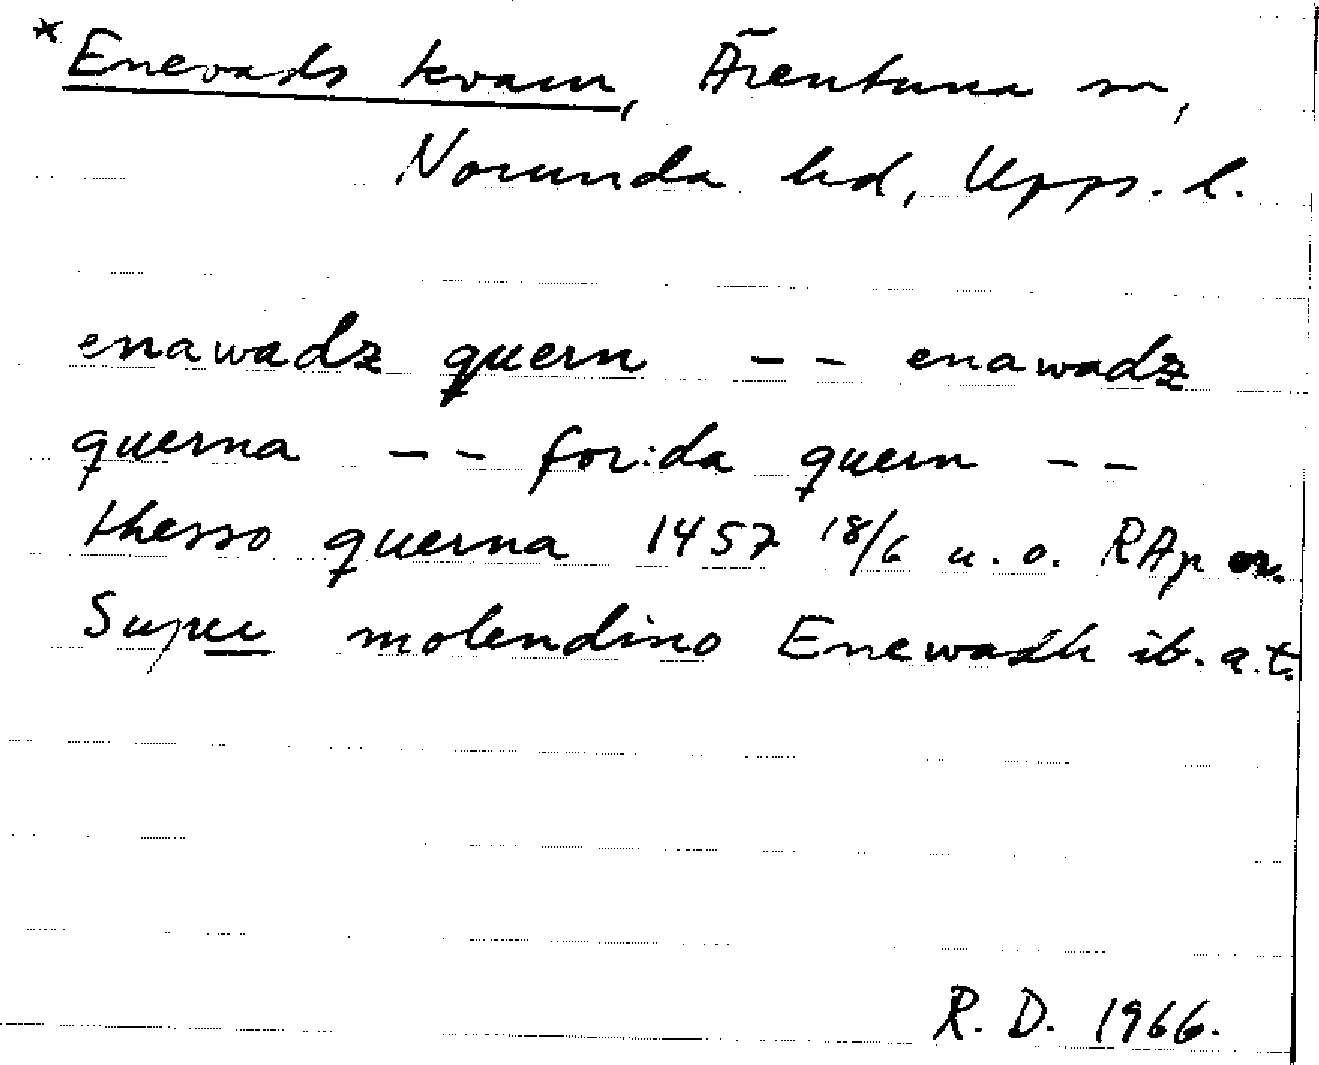 *Enevads kvarn, Ärentuna sn,
Norunda hd, Upps. l.
enawadz quern -- enawadz
querna -- for:da quern --
thesso querna 1457 18/6 u. o. RAp or.
Super molendino Enewadh ib. a.t.
R. D. 1966.